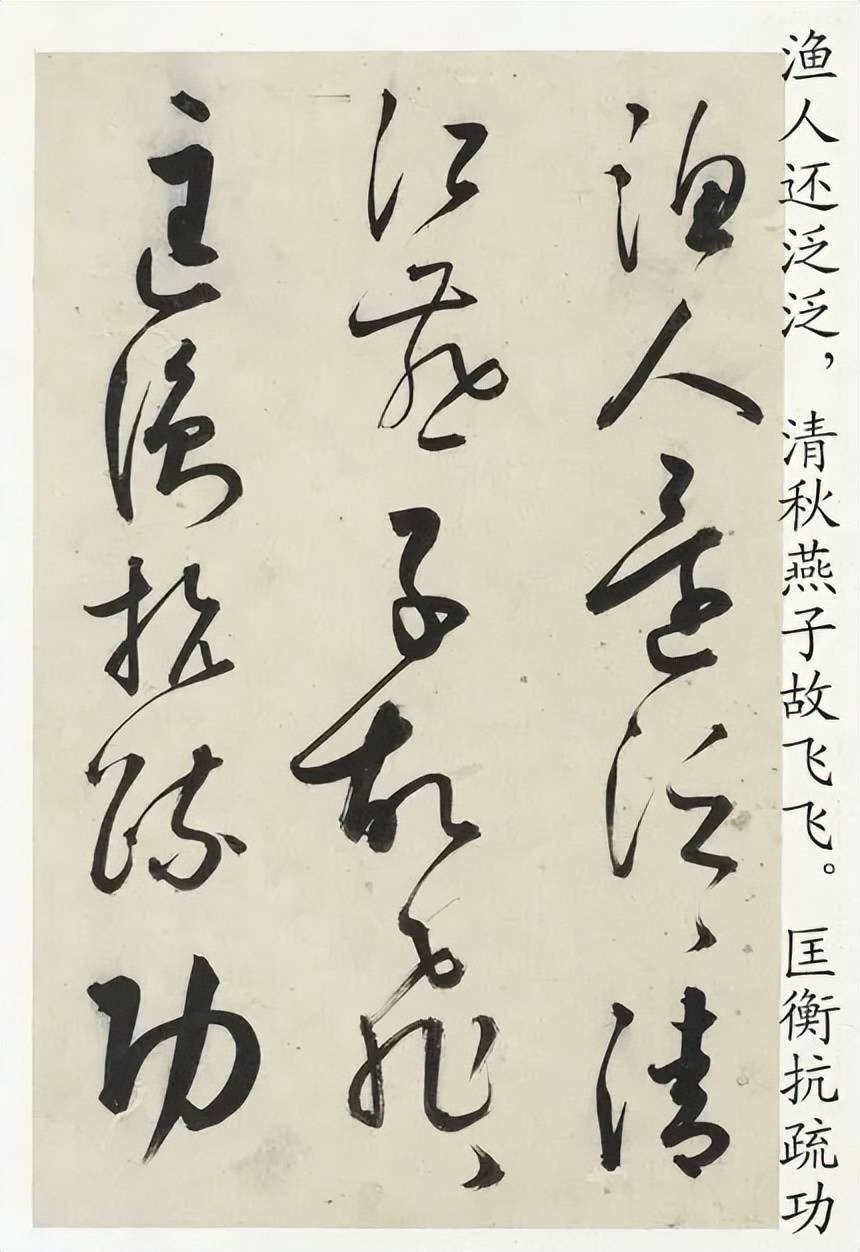 渔人还泛泛，清秋燕子故飞飞。匡衡抗疏功
漁人還泛〻清
江燕子故飛〻
匡衡抗疏功